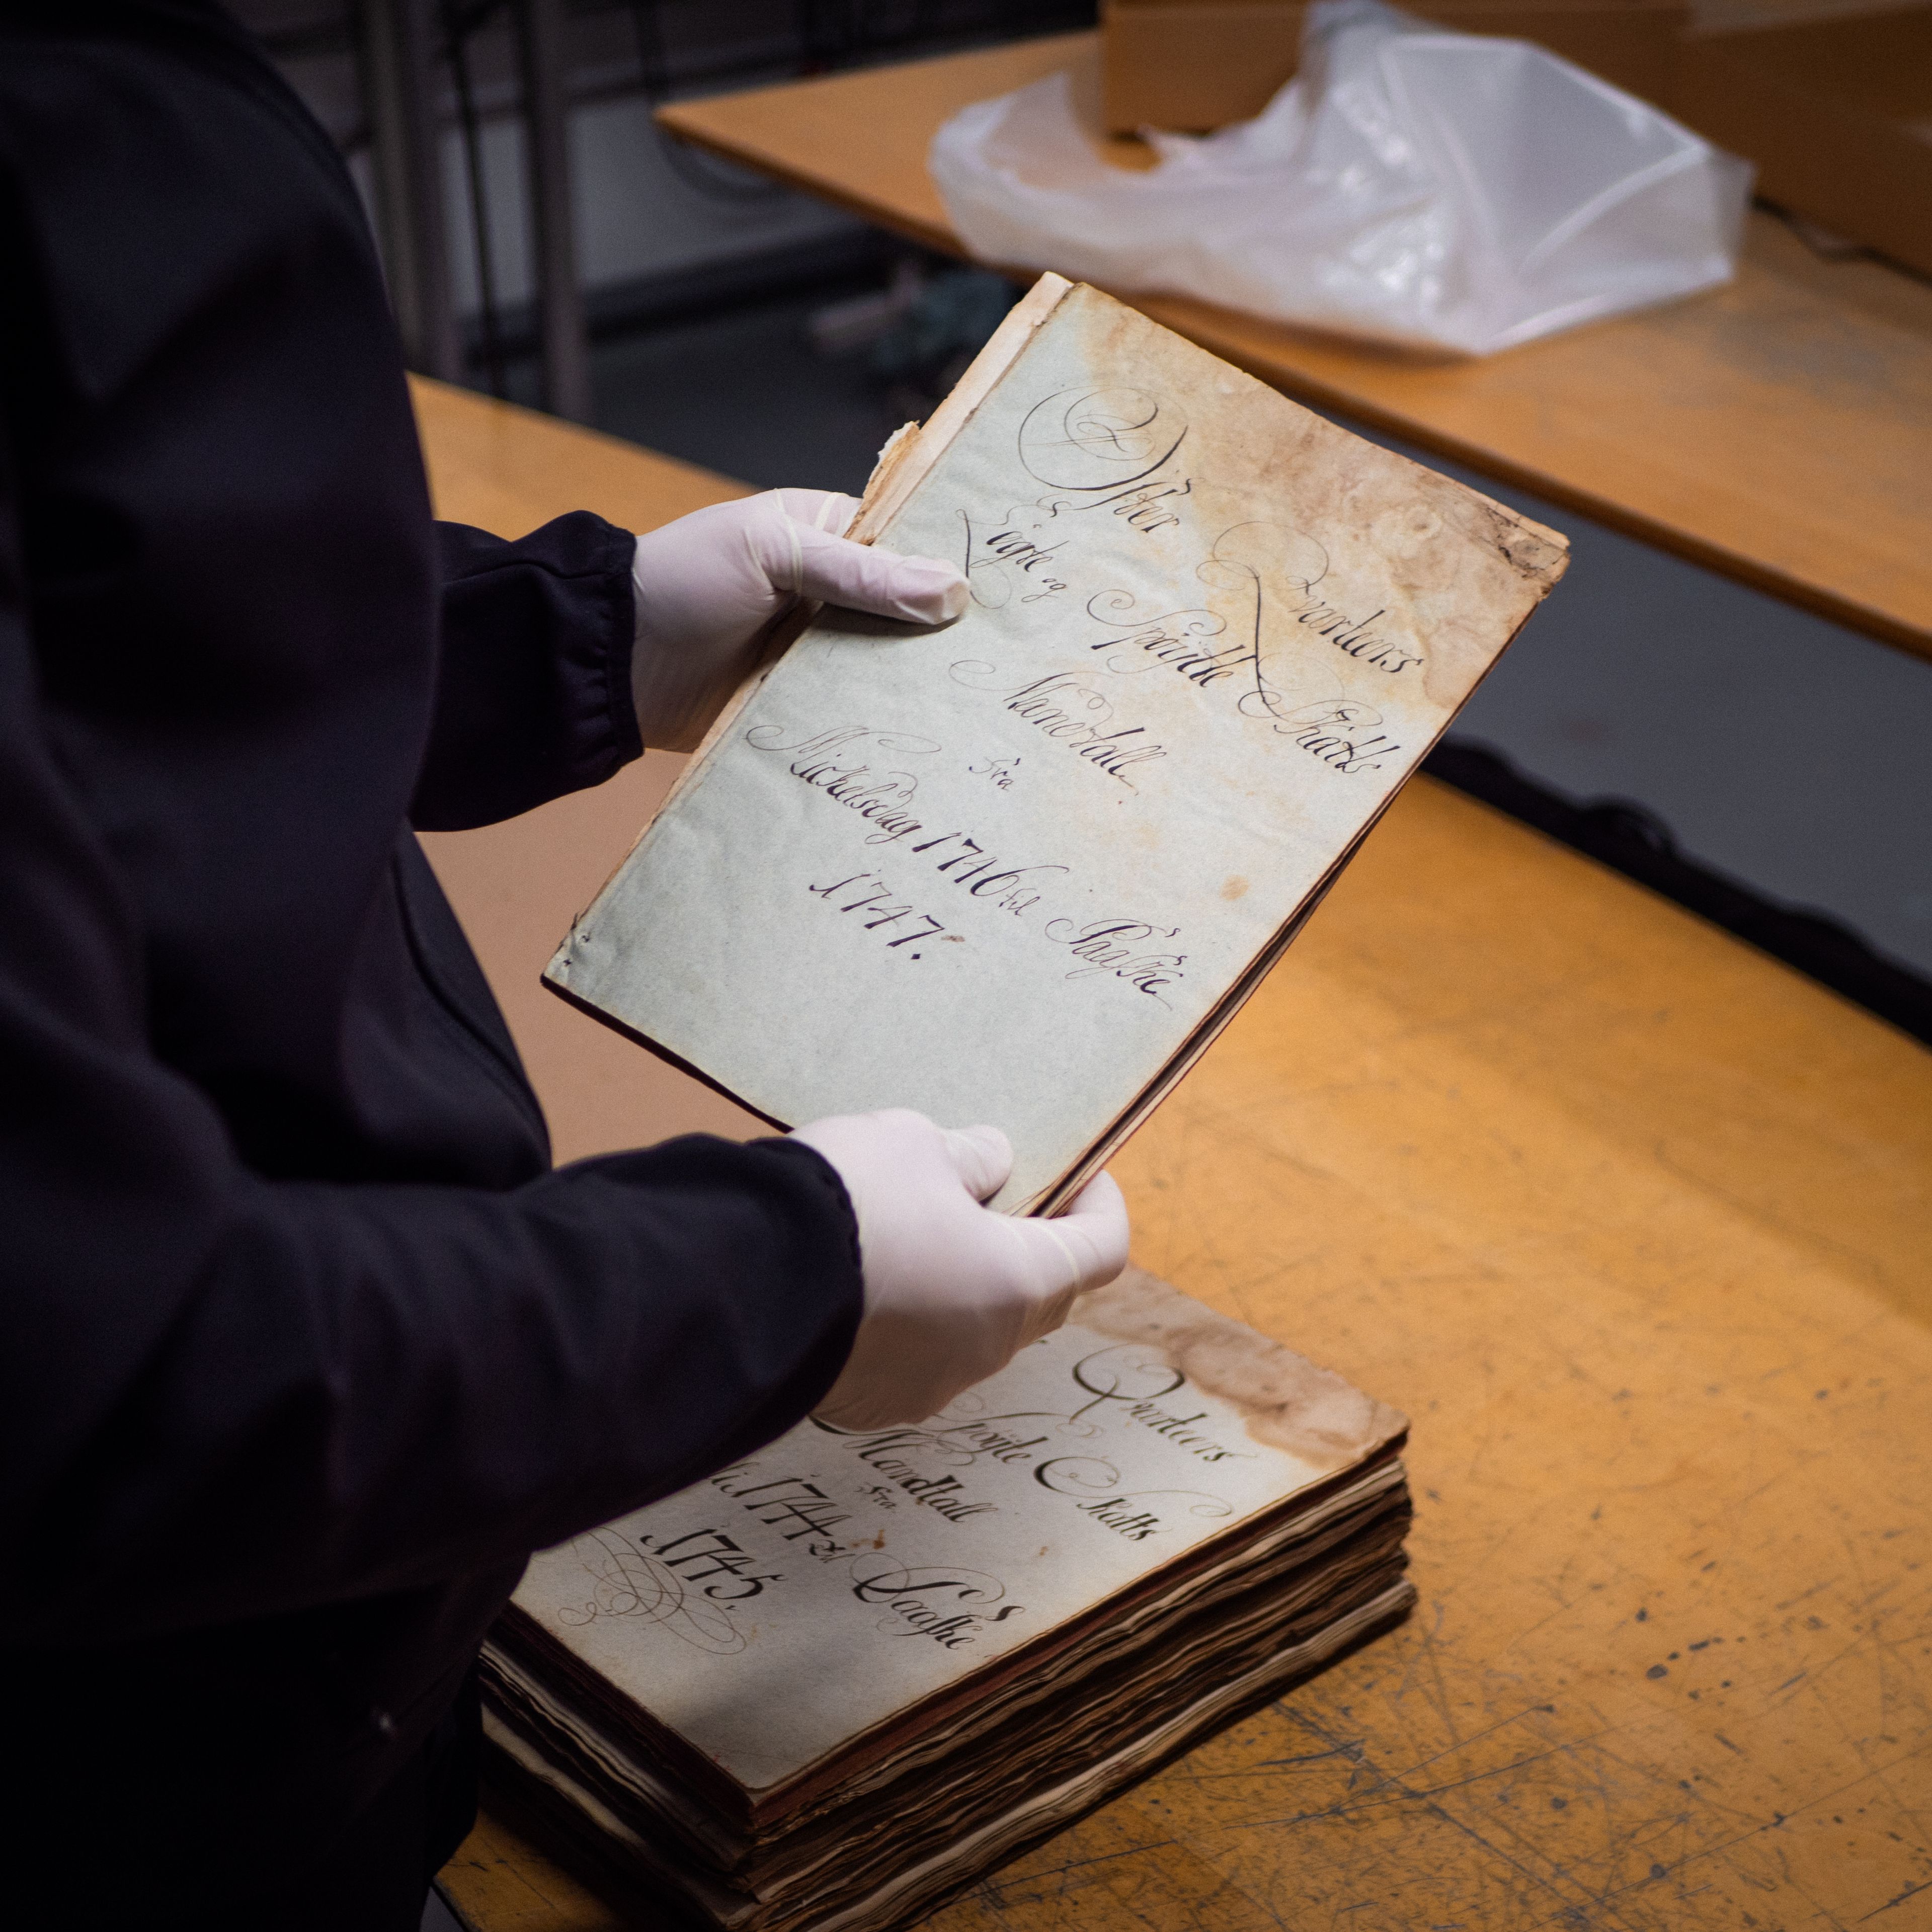 Øster Qvarteers
Lÿgte og Spøÿtte Skatts
Mandtall
fra
Michelsdag 1746 til Paaske
1747.
Qvarteers
Spøÿte Skatts
Mandtall
fra
1744 til Paaske
1745.